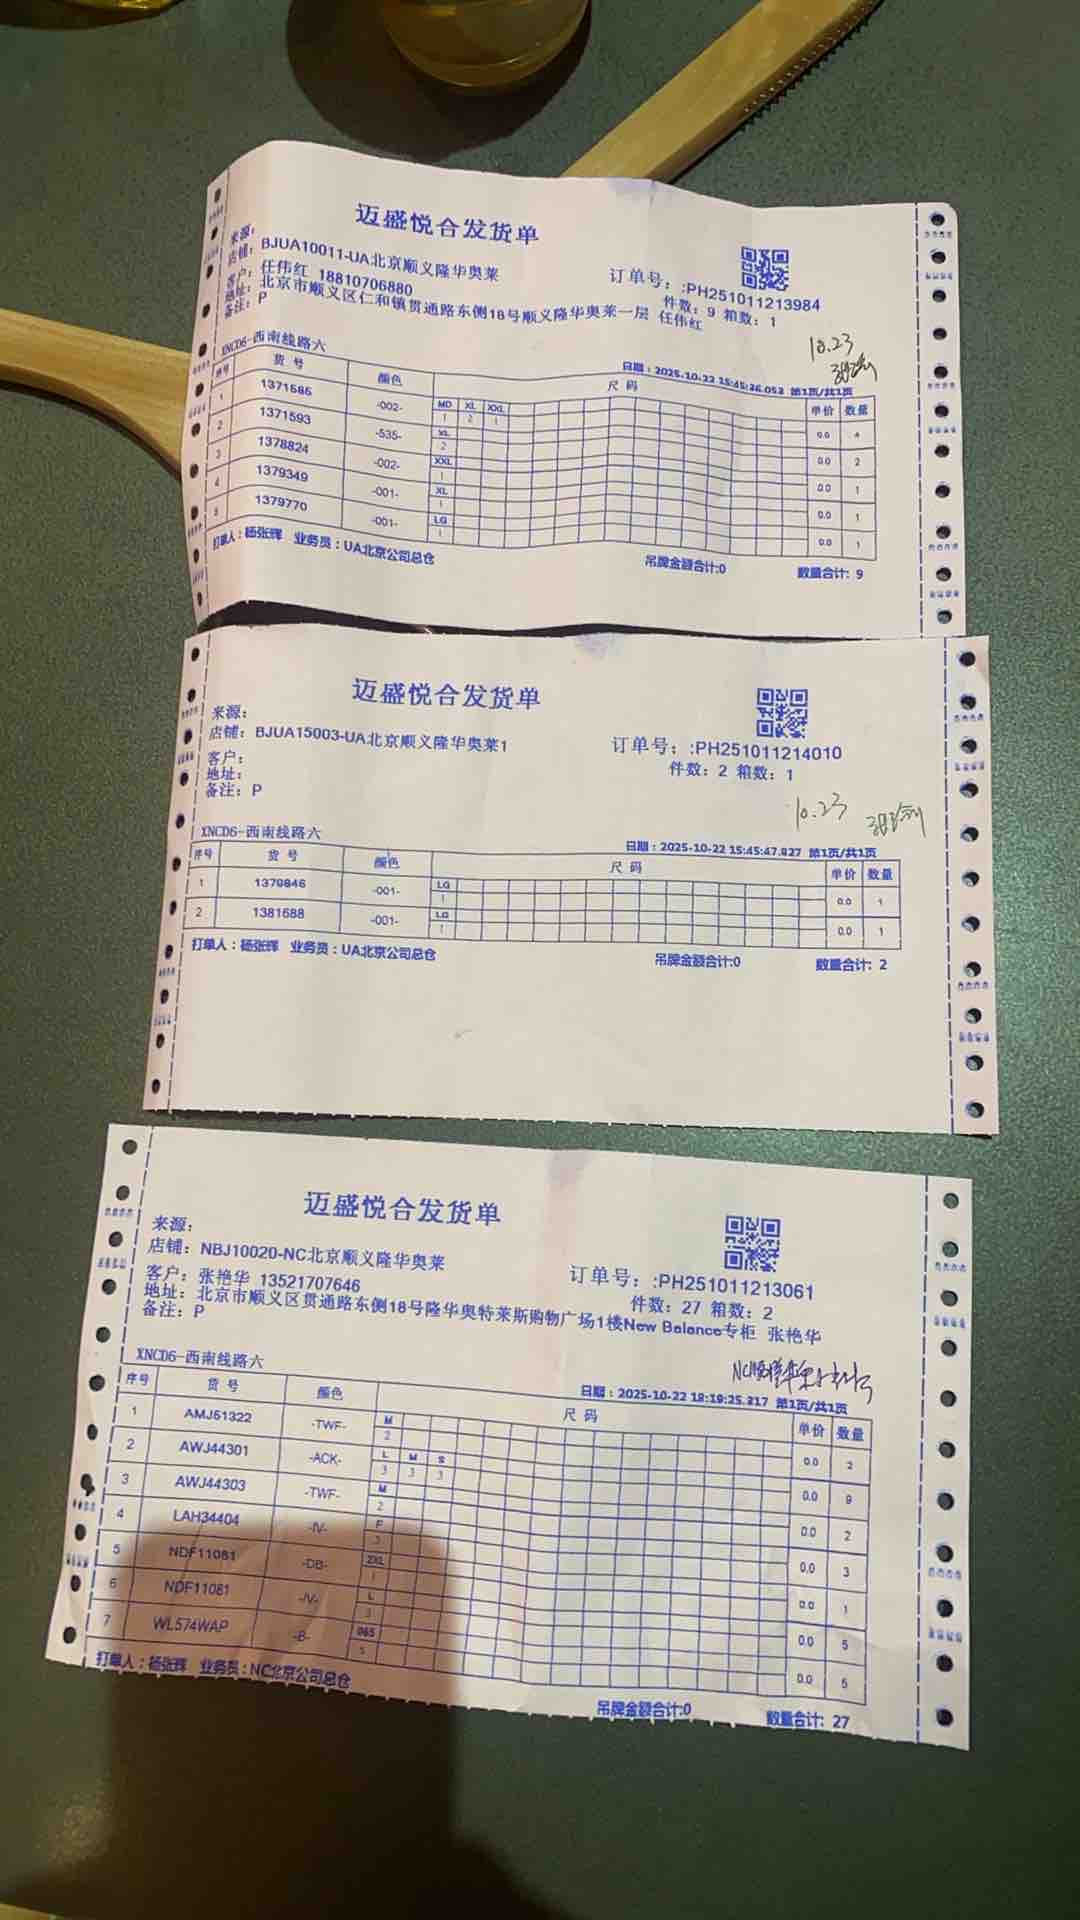 迈盛悦合发货单
来源:
店铺: BJUA10011-UA北京顺义隆华奥莱
订单号: :PH251011213984
客户: 任伟红 18810706880
件数: 9 箱数: 1
地址: 北京市顺义区仁和镇贯通路东侧18号顺义隆华奥莱一层 任伟红
备注: P
10.23
XNCD6-西南线路六
日期: 2025-10-22 15:45:36.053 第1页/共1页
序号 货号 颜色 尺码 单价 数量
MD XL XXL
1 1371586 -002- 1 2 1 0.0 4
XL
2 1371593 -535- 2 0.0 2
XXL
3 1378824 -002- 1 0.0 1
XL
4 1379349 -001- 1 0.0 1
LG
5 1379770 -001- 1 0.0 1
打单人: 杨张辉 业务员: UA北京公司总仓 吊牌金额合计:0 数量合计: 9
迈盛悦合发货单
来源:
店铺: BJUA15003-UA北京顺义隆华奥莱1
订单号: :PH251011214010
客户:
件数: 2 箱数: 1
地址:
备注: P
10.23
XNCD6-西南线路六
日期: 2025-10-22 15:45:47.827 第1页/共1页
序号 货号 颜色 尺码 单价 数量
LG
1 1379846 -001- 1 0.0 1
LG
2 1381688 -001- 1 0.0 1
打单人: 杨张辉 业务员: UA北京公司总仓 吊牌金额合计:0 数量合计: 2
迈盛悦合发货单
来源:
店铺: NBJ10020-NC北京顺义隆华奥莱
订单号: :PH251011213061
客户: 张艳华 13521707646
件数: 27 箱数: 2
地址: 北京市顺义区贯通路东侧18号隆华奥特莱斯购物广场1楼New Balance专柜 张艳华
备注: P
XNCD6-西南线路六
日期: 2025-10-22 18:19:25.217 第1页/共1页
序号 货号 颜色 尺码 单价 数量
M
1 AMJ51322 -TWF- 2 0.0 2
L M S
2 AWJ44301 -ACK- 3 3 3 0.0 9
M
3 AWJ44303 -TWF- 2 0.0 2
F
4 LAH34404 -IV- 3 0.0 3
2XL
5 NDF11081 -DB- 1 0.0 1
L
6 NDF11081 -IV- 0.0 5
065
7 WL574WAP -B- 5 0.0 5
打单人: 杨张辉 业务员: NC北京公司总仓 吊牌金额合计:0 数量合计: 27